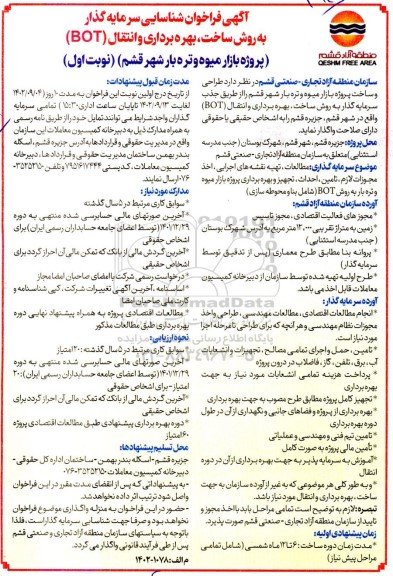 آگهی فراخوان شناسایی سرمایه گذار
به روش ساخت، بهره برداری و انتقال (BOT)
(پروژه بازار میوه و تره بار شهر قشم) (نوبت اول)
منطقه آزاد قشم
QESHM FREE AREA
سازمان منطقه آزاد تجاری - صنعتی قشم در نظر دارد طراحی
و ساخت پروژه بازار میوه و تره بار شهر قشم را از طریق جذب
سرمایه گذار به روش ساخت، بهره برداری و انتقال (BOT)
واقع در شهر قشم، جزیره قشم را به اشخاص حقیقی یا حقوقی
دارای صلاحیت واگذار نماید.
محل پروژه: جزیره قشم، شهر قشم، شهرک بوستان (جنب مدرسه
استثنایی) متعلق به سازمان منطقه آزاد تجاری - صنعتی قشم
موضوع سرمایه گذاری: مطالعات، تهیه نقشه های اجرایی، اخذ
مجوزات لازم، تامین، احداث، تجهیز و بهره برداری پروژه بازار میوه
و تره بار به روش BOT (شامل بنا و محوطه سازی)
آورده سازمان منطقه آزاد قشم:
* مجوز های فعالیت اقتصادی، مجوز تاسیس
* زمین به متراژ تقریبی ۱۳.۰۰۰ متر مربع به آدرس شهرک بوستان
(جنب مدرسه استثنایی)
* پروانه بنا مطابق طرح معماری (پس از تدقیق توسط
سرمایه گذار)
* طرح اولیه تهیه شده توسط سازمان از دبیرخانه کمیسیون
معاملات قابل اخذ می باشد.
آورده سرمایه گذار:
* انجام مطالعات اقتصادی، مطالعات مهندسی، طراحی و اخذ
مجوزات نظام مهندسی و هر آنچه که برای طراحی تا مرحله اجرا
مورد نیاز است.
* تامین، حمل و اجرای تمامی مصالح، تجهیزات و انشعابات
آب، برق، تلفن، گاز، فاضلاب در درون پروژه
* پرداخت هزینه تمامی انشعابات مورد نیاز به جهت
بهره برداری
* تجهیز کامل پروژه مطابق طرح مصوب به جهت بهره برداری
* بهره برداری از پروژه و فضاهای جانبی و نگهداری از آن در طول
دوره بهره برداری
* تامین تیم فنی و مهندسی و عملیاتی
* تامین مالی پروژه به صورت کامل
* آموزش به سرمایه پذیر به جهت بهره برداری از آن در دوره
انتقال
* و به طور کلی هر موضوعی که به غیر از آورده سازمان به جهت
ساخت، بهره برداری و انتقال مورد نیاز باشد.
تبصره: لازم به توضیح است تمامی مراحل باید با اخذ مجوز و
تایید از سازمان منطقه آزاد تجاری - صنعتی قشم صورت پذیرد.
زمان پیشنهادی اولیه:
* مدت زمان دوره ساخت: ۶ تا ۱۲ ماه شمسی (شامل تمامی
مراحل پیش نیاز)
مدت زمان قبول پیشنهادات:
از تاریخ درج اولین نوبت این فراخوان به مدت ۱۰ روز (۱۴۰۲/۰۹/۰۴
لغایت ۱۴۰۲/۰۹/۱۳ تا پایان ساعت اداری ۱۵:۳۰) تمامی سرمایه
گذاران واجد شرایط می توانند تمایل خود را از طریق نامه رسمی
به همراه مدارک ذیل به دبیرخانه کمیسیون معاملات این سازمان
واقع در مدیریت حقوقی و قراردادها به آدرس جزیره قشم، اسکله
بندر بهمن، ساختمان مدیریت حقوقی و قراردادها، دبیرخانه
ارسال نمایند.
مدارک مورد نیاز:
* سوابق کاری مرتبط در ۵ سال گذشته
* آخرین صورتهای مالی حسابرسی شده منتهی به دوره
۱۴۰۱/۱۲/۲۹ (توسط اعضای جامعه حسابداران رسمی ایران) برای
اشخاص حقوقی
* آخرین گردش مالی از بانک که تمکن مالی آن احراز گردد برای
اشخاص حقیقی
* درخواست رسمی شرکت با امضای صاحبان امضا مجاز
* اساسنامه، آخرین آگهی تغییرات شرکت، کپی شناسنامه و
کارت ملی صاحبان امضا
* مطالعات اقتصادی پروژه به همراه پیشنهاد نهایی دوره
بهره برداری طبق مطالعات مذکور
نحوه ارزیابی:
* سوابق کاری مرتبط در ۵ سال گذشته: ۲۰ امتیاز
* آخرین صورتهای مالی حسابرسی شده منتهی به دوره
۱۴۰۱/۱۲/۲۹ (توسط اعضای جامعه حسابداران رسمی ایران): ۲۰
امتیاز - برای اشخاص حقوقی
* آخرین گردش مالی از بانک که تمکن مالی آن احراز گردد برای
اشخاص حقیقی
* دوره بهره برداری پیشنهادی طبق مطالعات اقتصادی پروژه
۶۰ امتیاز
محل تسلیم پیشنهادها:
جزیره قشم - اسکله بندر بهمن - ساختمان اداره کل حقوقی -
دبیرخانه کمیسیون معاملات
- به پیشنهاداتی که پس از انقضای مدت مقرر در این فراخوان
واصل شود ترتیب اثر داده نخواهد شد.
- حضور در این فراخوان به منزله واگذاری موضوع فراخوان
نخواهد بود و صرفا جهت شناسایی سرمایه گذار است، فلذا
باتوجه به سیاستهای سازمان منطقه آزاد تجاری و صنعتی قشم
پس از طی فرآیند قانونی واگذار می گردد.
م الف: ۱۴۰۲-۱۰۷۸